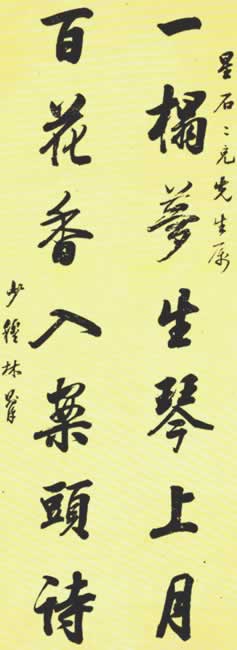 星石二兄先生属
一榻夢生琴上月
百花香入案頭詩
少穆林